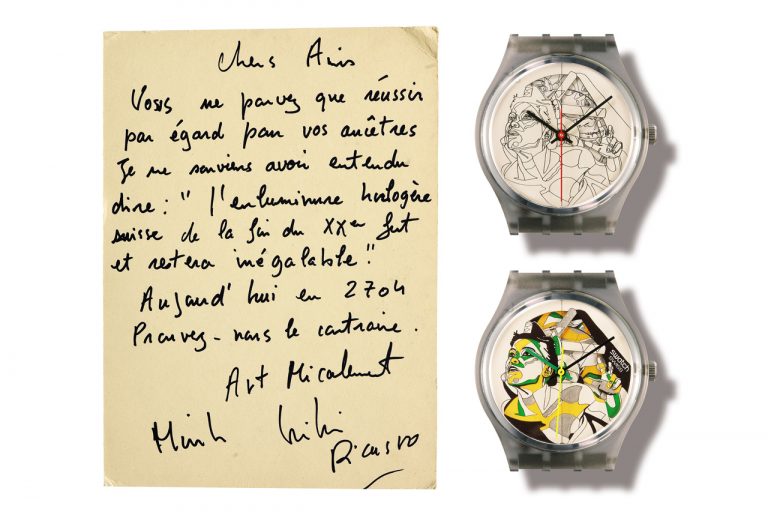 Chers Amis
Vous ne pouvez que réussir
par égard pour vos ancêtres
Je me souviens avoir entendu
dire : " l'enluminure horlogère
suisse de la fin du XXem fut
et restera inégalable "
Aujourd'hui en 2704
Prouvez-nous le contraire.
Art Micalement
Kiki
Picasso
swatch